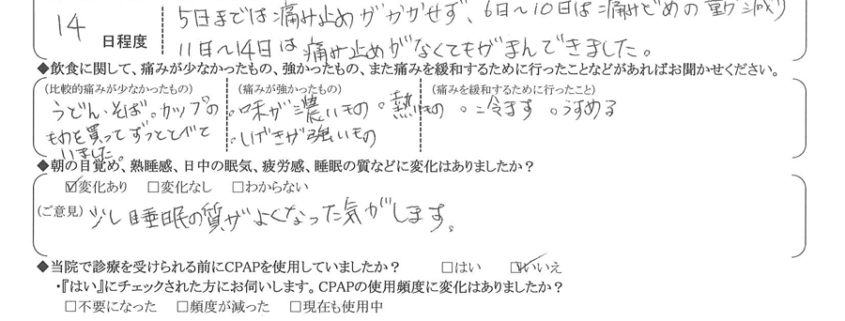 14 日程度
5日までは痛み止めがかかせず、6日〜10日は痛み止めの
11日〜14日は痛み止めがなくてもがまんできました。
◆飲食に関して、痛みが少なかったもの、強かったもの、また痛みを緩和するために行ったことなどがあればお聞かせください。
(比較的痛みが少なかったもの)
うどん・そば。カップの
ものを買ってずっとたべて
いました。
(痛みが強かったもの)
・味が濃いもの。熱いもの
・しげきが強いもの
(痛みを緩和するために行ったこと)
。冷ます。うすめる
◆朝の目覚め、熟睡感、日中の眠気、疲労感、睡眠の質などに変化はありましたか?
☑変化あり □変化なし □わからない
(ご意見) 少し睡眠の質がよくなった気がします。
◆当院で診療を受けられる前にCPAPを使用していましたか? □はい ☑いいえ
・『はい』にチェックされた方にお伺いします。CPAPの使用頻度に変化はありましたか?
□不要になった □頻度が減った □現在も使用中